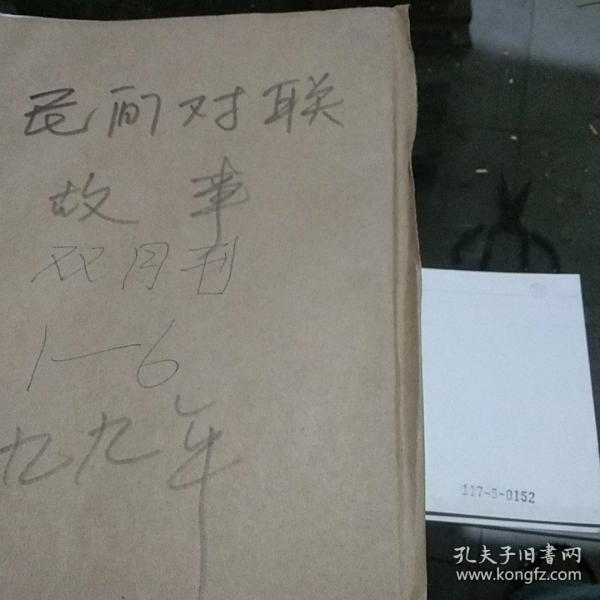 民间对联
故事
双月刊
1—6
九九年
117-5-0152
孔夫子旧书网
www.kongfz.com